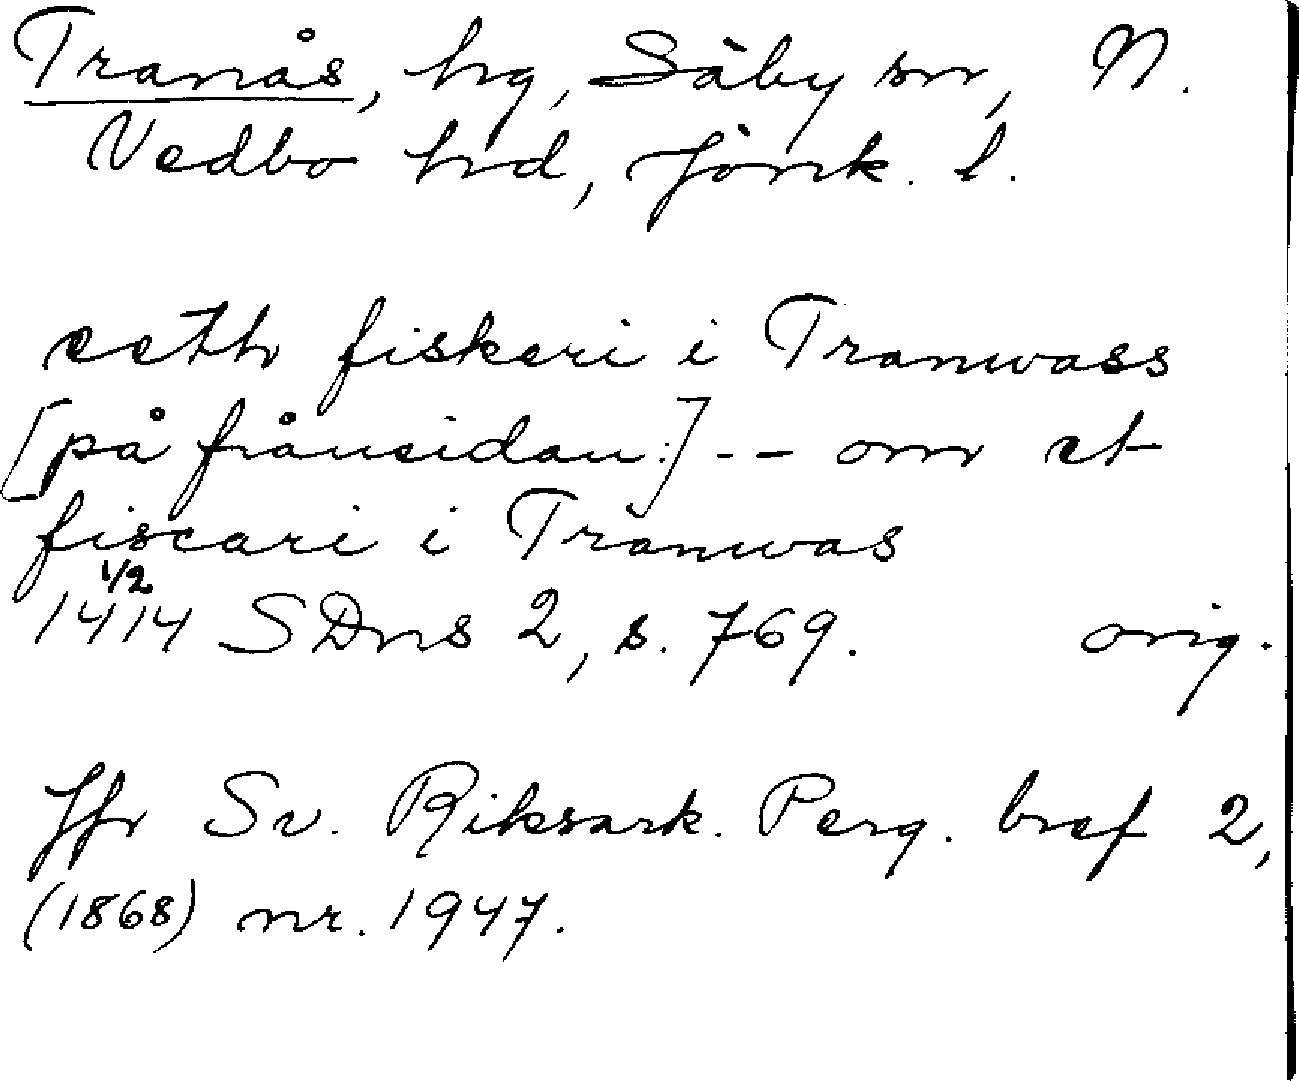 Tranås, hg, Säby sn, N.
Vedbo hd, Jönk. l.
eetth fiskeri i Tranwass
[på frånsidan:] -- om et
fiscari i Tranwas
1/2
1414 SDns 2, s. 769. orig.
Jfr Sv. Riksark. Perg. bref 2,
(1868) nr. 1947.